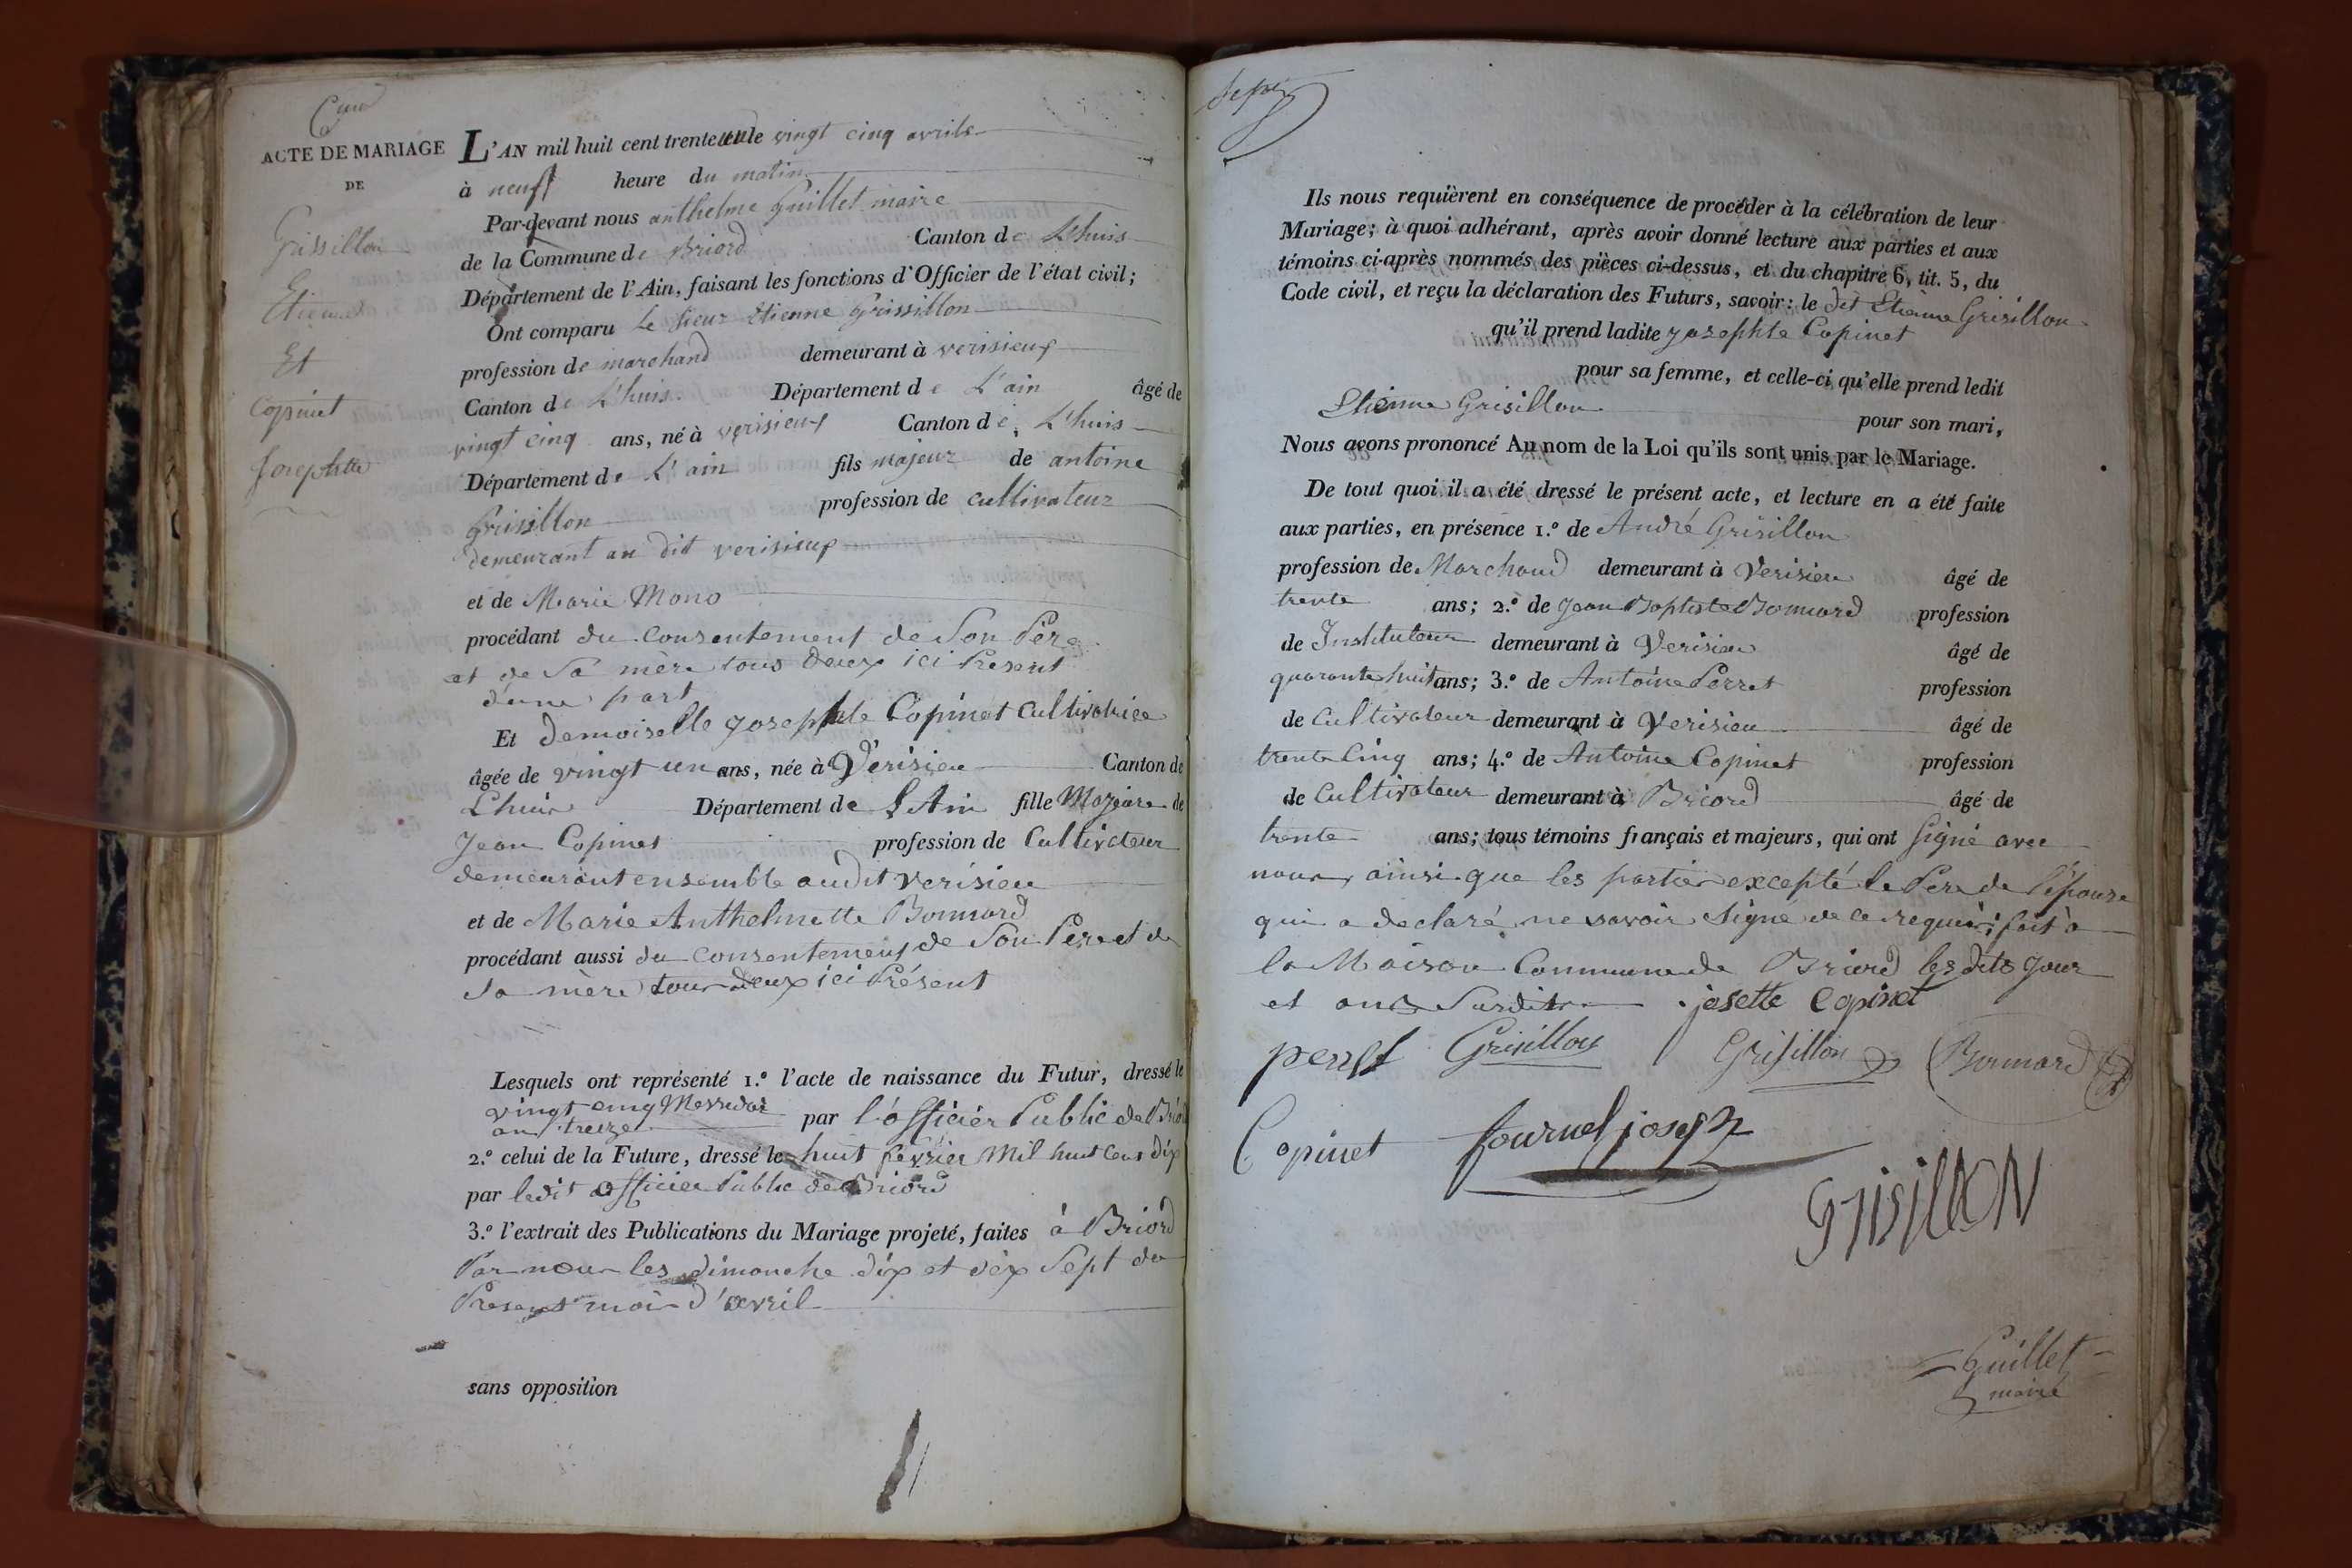 ACTE DE MARIAGE
DE
Grissillon
Etienne
Et
Copinet
Josephtte
L'AN mil huit cent trente un le vingt cinq avrils
à neuf heure du matin
Par-devant nous anthelme Guillet maire
de la Commune de Briord Canton de L'huis
Département de l'Ain, faisant les fonctions d'Officier de l'état civil;
Ont comparu Le sieur Etienne Grissillon
profession de marchand demeurant à verisieux
Canton de L'huis Département de L'ain âgé de
vingt cinq ans, né à verisieux Canton de L'huis
Département de L'ain fils majeur de antoine
Grisillon profession de cultivateur
demeurant au dit verisieux
et de Marie Mono
procédant du Consentement de Son Père
et de Sa mère tous deux ici Present
d'une part
Et demoiselle Josephte Copinet Cultivatrice
âgée de vingt un ans, née à Vérisieu Canton de
L'huis Département de L'Ain fille Majeure de
Jean Copinet profession de Cultivateur
demeurant ensemble audit verisieu
et de Marie Anthelmette Bonnard
procédant aussi du Consentement de Son Pere et de
Sa mère tous deux ici Présent
Lesquels ont représenté 1.º l'acte de naissance du Futur, dressé le
vingt cinq Messidor
an treize par l'officier Public de Briord
2.º celui de la Future, dressé le huit février Mil huit cent dix
par ledit officier Public de Briord
3.º l'extrait des Publications du Mariage projeté, faites à Briord
Par nous les dimanche dix et dix Sept du
Present mois d'avril
sans opposition
Ils nous requièrent en conséquence de procéder à la célébration de leur
Mariage; à quoi adhérant, après avoir donné lecture aux parties et aux
témoins ci-après nommés des pièces ci-dessus, et du chapitre 6, tit. 5, du
Code civil, et reçu la déclaration des Futurs, savoir: le dit Etienne Grisillon
qu'il prend ladite Josephte Copinet
pour sa femme, et celle-ci qu'elle prend ledit
Etienne Grisillon pour son mari,
Nous avons prononcé Au nom de la Loi qu'ils sont unis par le Mariage.
De tout quoi il a été dressé le présent acte, et lecture en a été faite
aux parties, en présence 1.º de André Grisillon
profession de Marchand demeurant à Verisieu âgé de
trente ans; 2.º de Jean Baptiste Bonnard profession
de Instituteur demeurant à Verisieu âgé de
quarante huit ans; 3.º de Antoine Perret profession
de Cultivateur demeurant à Verisieu âgé de
trente Cinq ans; 4.º de Antoine Copinet profession
de Cultivateur demeurant à Briord âgé de
trente ans; tous témoins français et majeurs, qui ont Signé avec
nous, ainsi que les parties excepté le Pere de l'épouse
qui a declaré ne savoir Signé de ce requis; fait à
la Maison Commune de Briord les dits jour
et an Susdits josette Copinet
peret Grisillon Grisillon Bonnard
Copinet fournel joseph
GrisillON
Guillet
maire